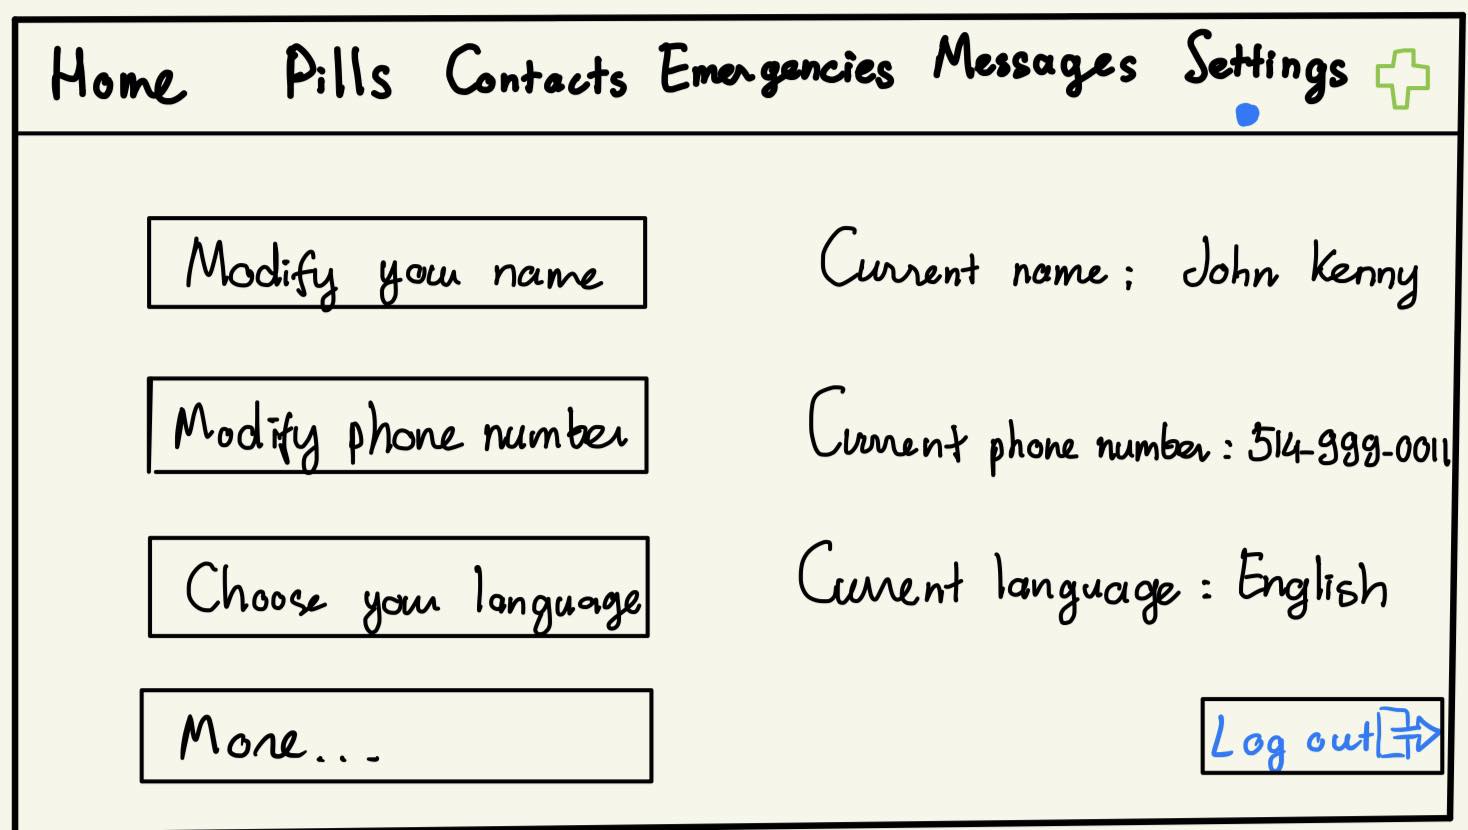 Home Pills Contacts Emergencies Messages Settings
Modify your name Current name: John Kenny
Modify phone number Current phone number: 514-999-0011
Choose your language Current language: English
More...
Log out